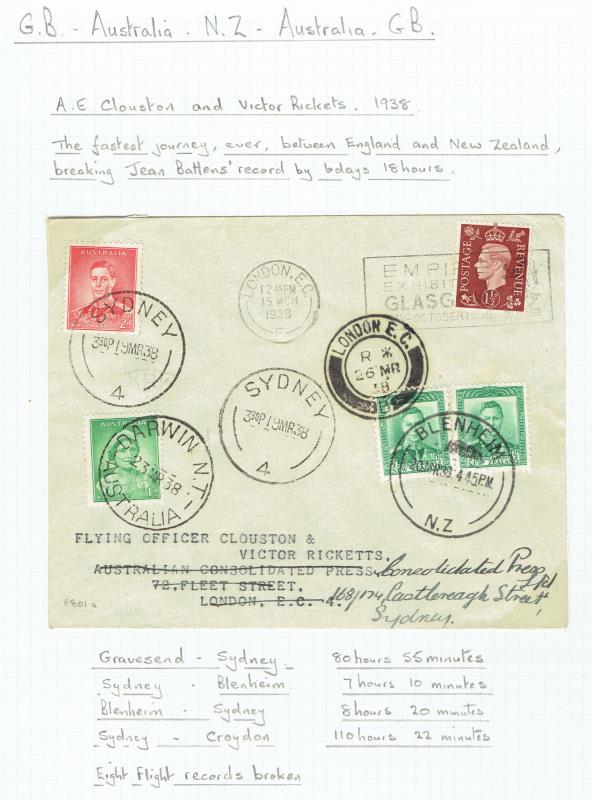 G.B. - Australia - N.Z - Australia - GB.
A.E. Clouston and Victor Rickets. 1938
The fastest journey, ever, between England and New Zealand,
breaking Jean Battens' record by 6days 18hours.
AUSTRALIA
2d
SYDNEY
330P 19MR38
4
LONDON.E.C.
12 45PM
15 MCH
1938
E
EMPIRE
EXHIBIT
GLASG
OCTOBER 1938
POSTAGE
REVENUE
1½
LONDON E.C.
R
26 MR
38
SYDNEY
330P 19MR38
4
AUSTRALIA
DARWIN N.T.
23MR38
AUSTRALIA
NEW ZEALAND
BLENHEIM
MR38 4 45 P.M.
N.Z
FLYING OFFICER CLOUSTON &
VICTOR RICKETTS,
AUSTRALIAN CONSOLIDATED PRESS, Consolidated Press
72, FLEET STREET, Ltd
LONDON, E.C. 4. 168/174, Castlereagh Street,
Sydney.
E801a
Gravesend - Sydney 80hours 55minutes
Sydney - Blenheim 7 hours 10 minutes
Blenheim - Sydney 8hours 20 minutes
Sydney - Croydon 110hours 22 minutes
Eight Flight records broken